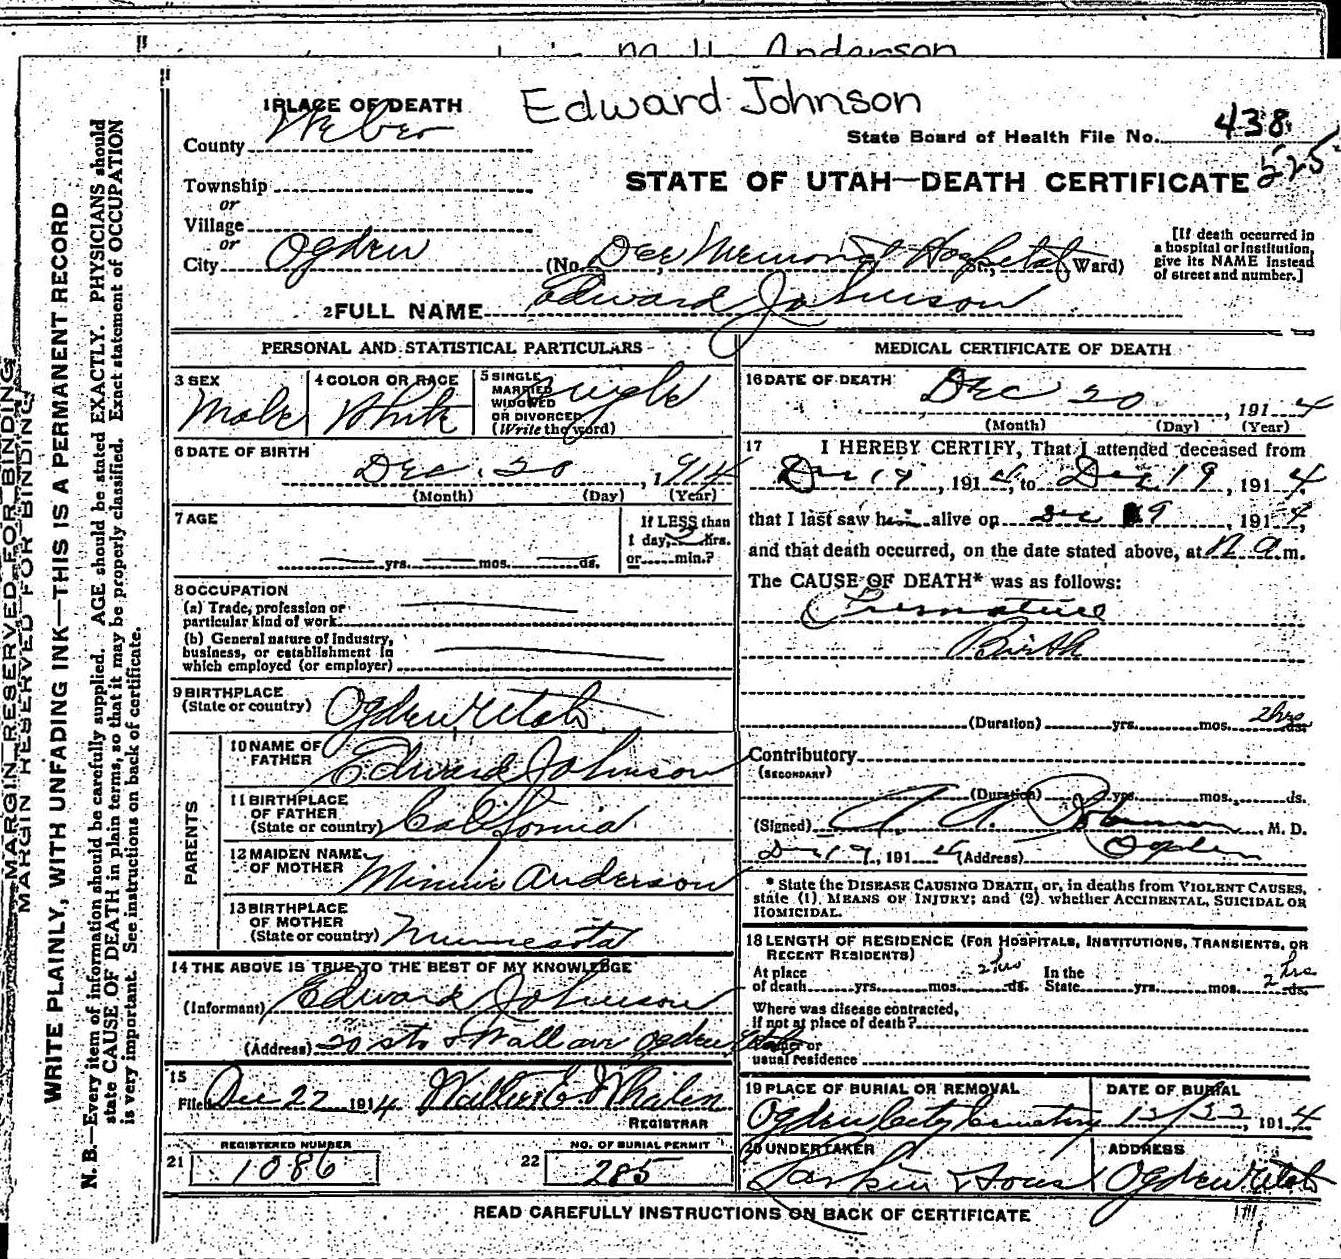 M. H. Anderson
Edward Johnson
1 PLACE OF DEATH
County Weber
State Board of Health File No. 438
525
Township
or
STATE OF UTAH—DEATH CERTIFICATE
Village
or
City Ogden (No. Dee Memorial Hospital St., Ward)
[If death occurred in
a hospital or institution,
give its NAME instead
of street and number.]
2 FULL NAME Edward Johnson
PERSONAL AND STATISTICAL PARTICULARS
3 SEX
Male
4 COLOR OR RACE
White
5 SINGLE
MARRIED
WIDOWED
OR DIVORCED
(Write the word)
Single
6 DATE OF BIRTH
Dec. 20, 1914
(Month) (Day) (Year)
7 AGE
yrs. mos. ds.
If LESS than
1 day, 2 hrs.
or min.?
8 OCCUPATION
(a) Trade, profession or
particular kind of work
(b) General nature of industry,
business, or establishment in
which employed (or employer)
9 BIRTHPLACE
(State or country) Ogden Utah
PARENTS
10 NAME OF
FATHER Edward Johnson
11 BIRTHPLACE
OF FATHER
(State or country) California
12 MAIDEN NAME
OF MOTHER Minnie Anderson
13 BIRTHPLACE
OF MOTHER
(State or country) Minnesota
14 THE ABOVE IS TRUE TO THE BEST OF MY KNOWLEDGE
(Informant) Edward Johnson
(Address) 20 st & Wall ave Ogden Utah
15
Filed Dec 22 1914 Walter E Whalen
REGISTRAR
21 REGISTERED NUMBER
1086
22 NO. OF BURIAL PERMIT
285
MEDICAL CERTIFICATE OF DEATH
16 DATE OF DEATH
Dec 20, 1914
(Month) (Day) (Year)
17 I HEREBY CERTIFY, That I attended deceased from
Dec 19, 1914, to Dec 19, 1914
that I last saw him alive on Dec 19, 1914,
and that death occurred, on the date stated above, at a m.
The CAUSE OF DEATH* was as follows:
Premature
Birth
(Duration) yrs. mos. 2 hrs ds.
Contributory
(SECONDARY)
(Duration) yrs. mos. ds.
(Signed) M. D.
Dec 19, 1914 (Address) Ogden
* State the DISEASE CAUSING DEATH, or, in deaths from VIOLENT CAUSES,
state (1) MEANS OF INJURY; and (2) whether ACCIDENTAL, SUICIDAL OR
HOMICIDAL.
18 LENGTH OF RESIDENCE (FOR HOSPITALS, INSTITUTIONS, TRANSIENTS, OR
RECENT RESIDENTS)
At place
of death yrs. mos. 2 hrs ds.
In the
State yrs. mos. 2 hrs ds.
Where was disease contracted,
if not at place of death?
Former or
usual residence
19 PLACE OF BURIAL OR REMOVAL
Ogden City Cemetery
DATE OF BURIAL
12/22, 1914
20 UNDERTAKER
Larkin & Sons
ADDRESS
Ogden Utah
READ CAREFULLY INSTRUCTIONS ON BACK OF CERTIFICATE
MARGIN RESERVED FOR BINDING
MARGIN RESERVED FOR BINDING
WRITE PLAINLY, WITH UNFADING INK—THIS IS A PERMANENT RECORD
N. B.—Every item of information should be carefully supplied. AGE should be stated EXACTLY. PHYSICIANS should
state CAUSE OF DEATH in plain terms, so that it may be properly classified. Exact statement of OCCUPATION
is very important. See instructions on back of certificate.